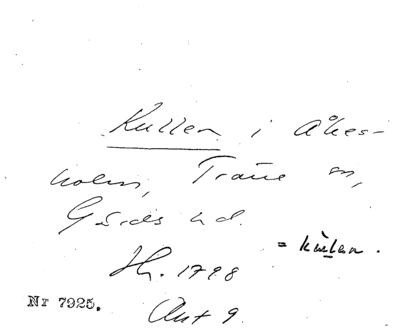 Kullen i Åkes-
holm, Träne sn,
Gärds hd.
= kùlan.
Hr. 1798
Nr 7925.
Ant 9